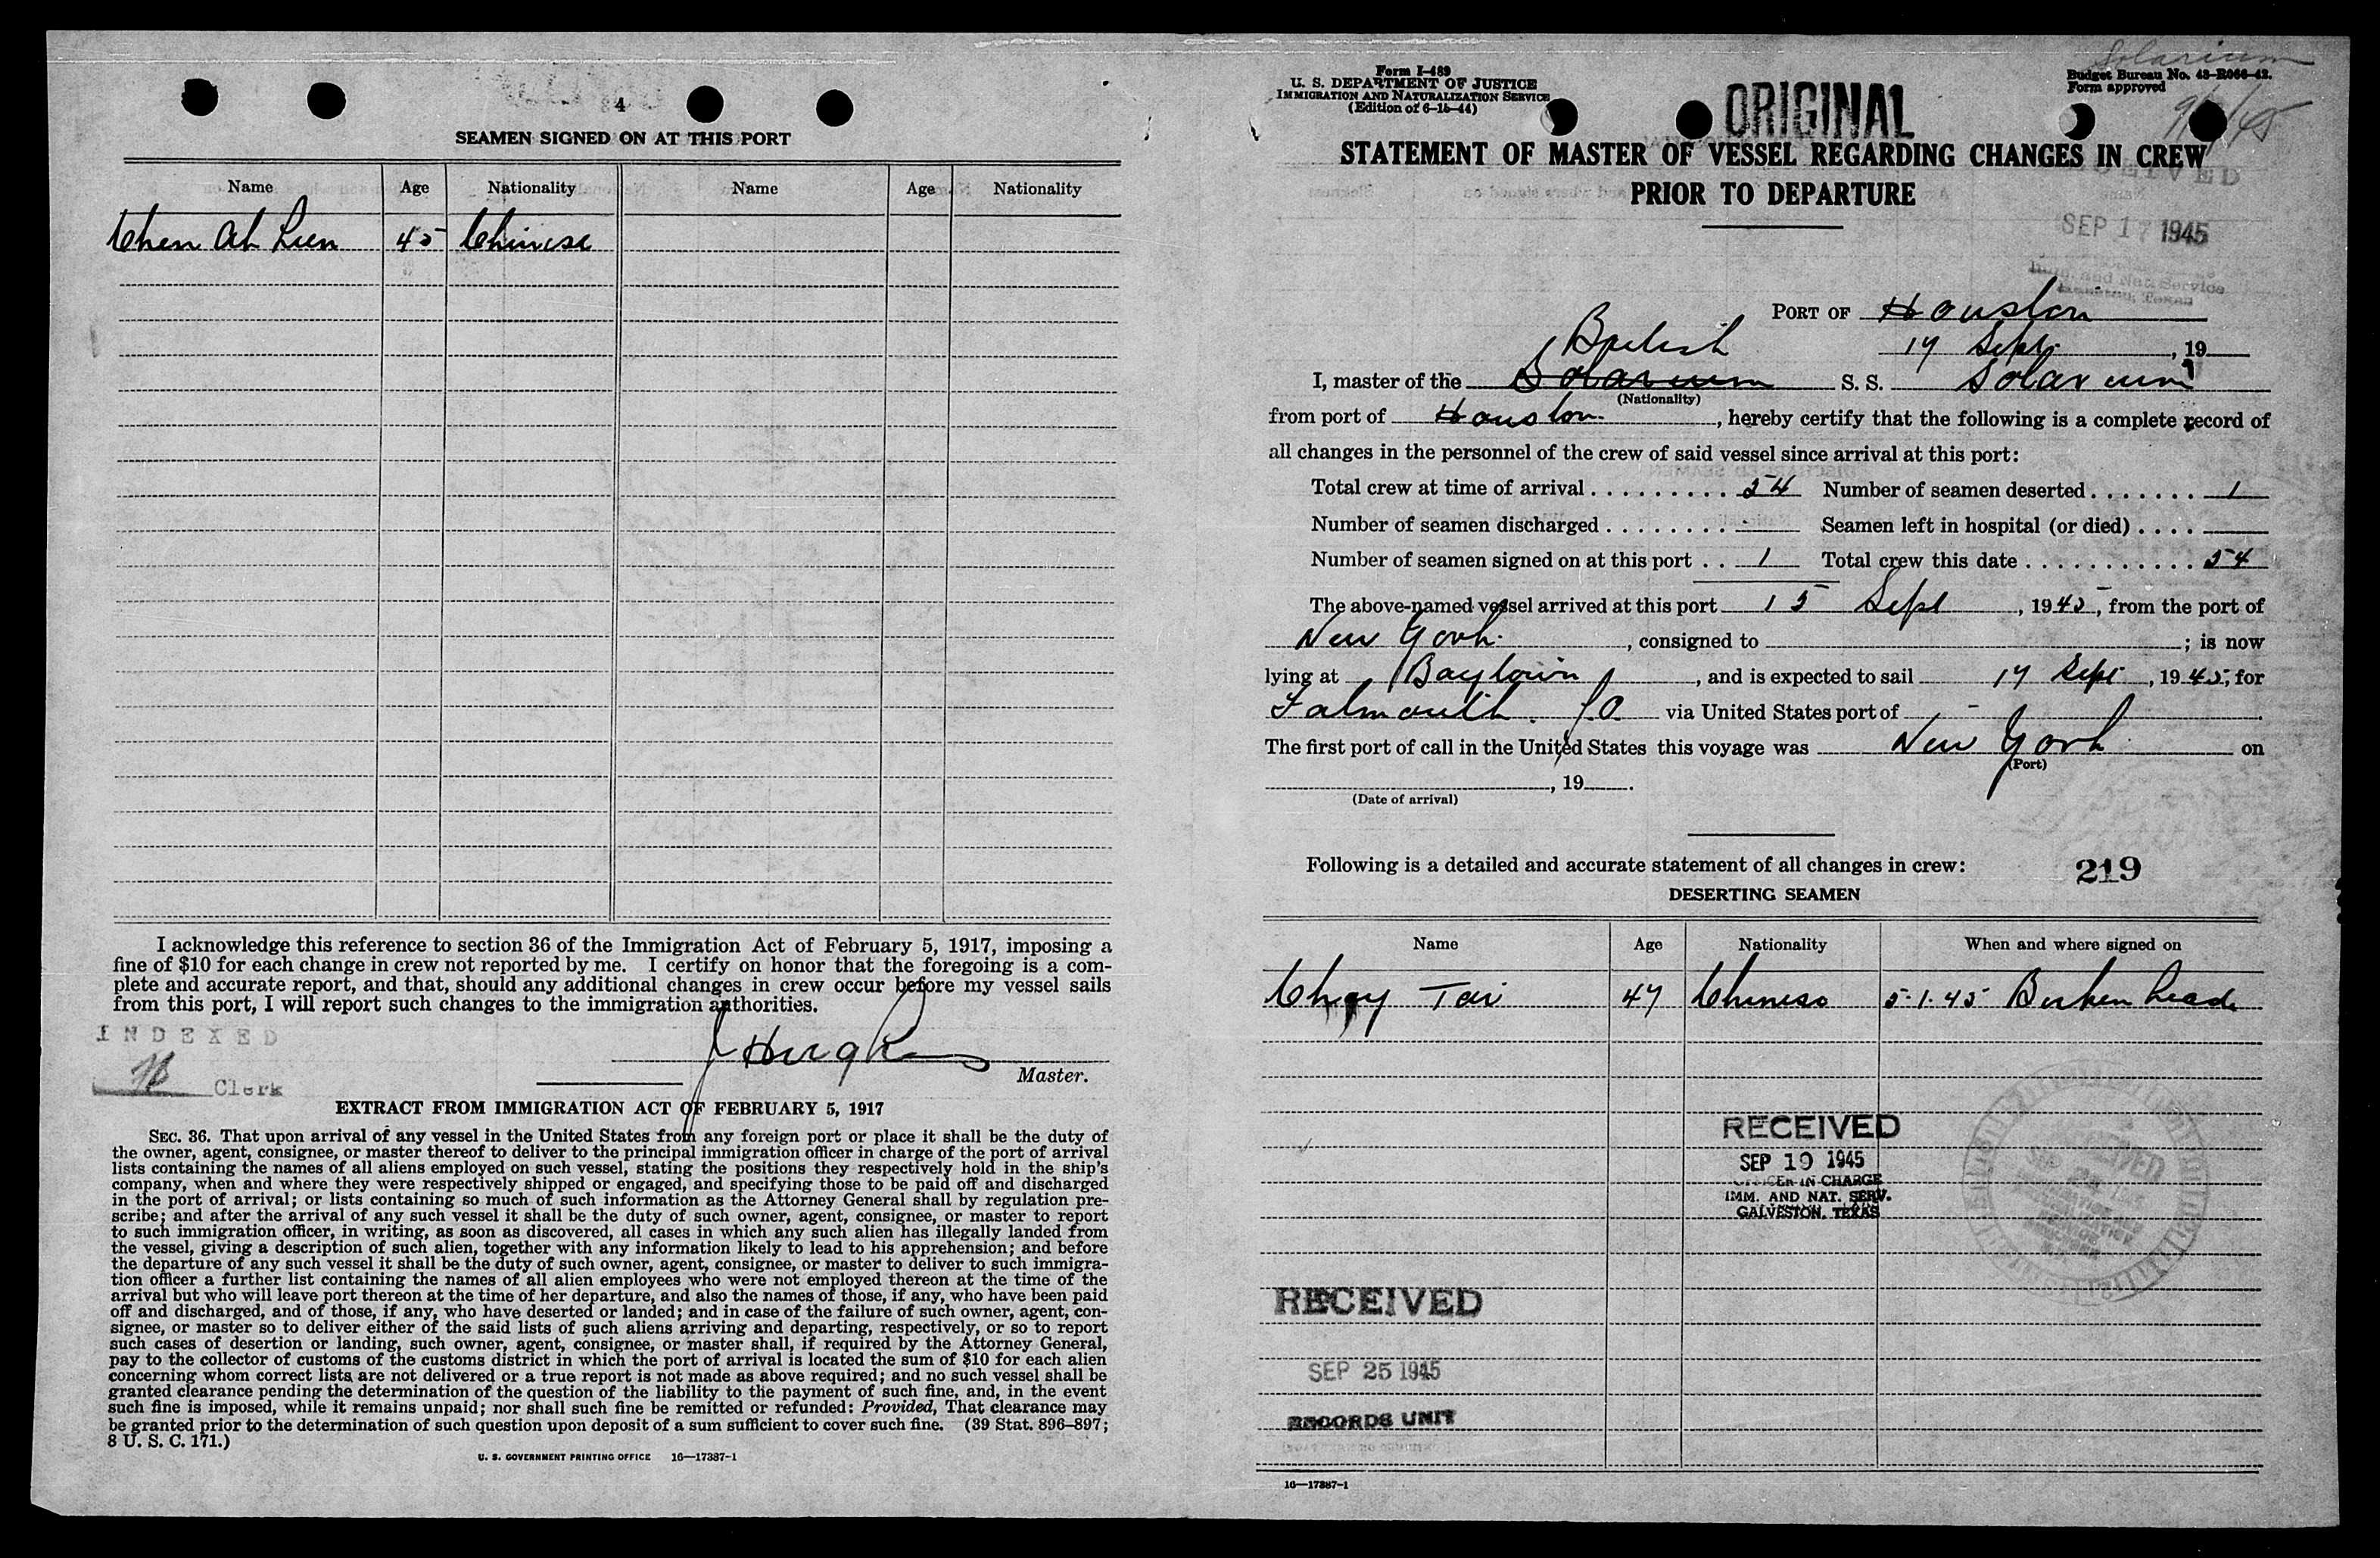 4
SEAMEN SIGNED ON AT THIS PORT
Name Age Nationality Name Age Nationality
Chen Ah Luen 45 Chinese
I acknowledge this reference to section 36 of the Immigration Act of February 5, 1917, imposing a
fine of $10 for each change in crew not reported by me. I certify on honor that the foregoing is a com-
plete and accurate report, and that, should any additional changes in crew occur before my vessel sails
from this port, I will report such changes to the immigration authorities.
INDEXED
Clerk
J Hughes
Master.
EXTRACT FROM IMMIGRATION ACT OF FEBRUARY 5, 1917
SEC. 36. That upon arrival of any vessel in the United States from any foreign port or place it shall be the duty of
the owner, agent, consignee, or master thereof to deliver to the principal immigration officer in charge of the port of arrival
lists containing the names of all aliens employed on such vessel, stating the positions they respectively hold in the ship's
company, when and where they were respectively shipped or engaged, and specifying those to be paid off and discharged
in the port of arrival; or lists containing so much of such information as the Attorney General shall by regulation pre-
scribe; and after the arrival of any such vessel it shall be the duty of such owner, agent, consignee, or master to report
to such immigration officer, in writing, as soon as discovered, all cases in which any such alien has illegally landed from
the vessel, giving a description of such alien, together with any information likely to lead to his apprehension; and before
the departure of any such vessel it shall be the duty of such owner, agent, consignee, or master to deliver to such immigra-
tion officer a further list containing the names of all alien employees who were not employed thereon at the time of the
arrival but who will leave port thereon at the time of her departure, and also the names of those, if any, who have been paid
off and discharged, and of those, if any, who have deserted or landed; and in case of the failure of such owner, agent, con-
signee, or master so to deliver either of the said lists of such aliens arriving and departing, respectively, or so to report
such cases of desertion or landing, such owner, agent, consignee, or master shall, if required by the Attorney General,
pay to the collector of customs of the customs district in which the port of arrival is located the sum of $10 for each alien
concerning whom correct lists are not delivered or a true report is not made as above required; and no such vessel shall be
granted clearance pending the determination of the question of the liability to the payment of such fine, and, in the event
such fine is imposed, while it remains unpaid; nor shall such fine be remitted or refunded: Provided, That clearance may
be granted prior to the determination of such question upon deposit of a sum sufficient to cover such fine. (39 Stat. 896–897;
8 U. S. C. 171.)
U. S. GOVERNMENT PRINTING OFFICE 16—17387-1
Solarium
Form I-489
U. S. DEPARTMENT OF JUSTICE
IMMIGRATION AND NATURALIZATION SERVICE
(Edition of 6-15-44)
Budget Bureau No. 43-R066-42.
Form approved
ORIGINAL
STATEMENT OF MASTER OF VESSEL REGARDING CHANGES IN CREW
PRIOR TO DEPARTURE
SEP 17 1945
Imm. and Nat. Service
Houston, Texas
PORT OF Houston
17 Sept., 19
British
I, master of the Solarium S. S. Solarium
(Nationality)
from port of Houston, hereby certify that the following is a complete record of
all changes in the personnel of the crew of said vessel since arrival at this port:
Total crew at time of arrival 54 Number of seamen deserted 1
Number of seamen discharged - Seamen left in hospital (or died)
Number of seamen signed on at this port 1 Total crew this date 54
The above-named vessel arrived at this port 15 Sept, 1945, from the port of
New York, consigned to ; is now
lying at Baytown, and is expected to sail 17 Sept, 1945, for
Falmouth. f.o. via United States port of -
The first port of call in the United States this voyage was New York on
(Port)
, 19 .
(Date of arrival)
Following is a detailed and accurate statement of all changes in crew: 219
DESERTING SEAMEN
Name Age Nationality When and where signed on
Tai 47 Chinese 5.1.45 Birkenhead
RECEIVED
SEP 19 1945
OFFICER IN CHARGE
IMM. AND NAT. SERV.
GALVESTON, TEXAS
RECEIVED
SEP 25 1945
RECORDS UNIT
16—17387-1